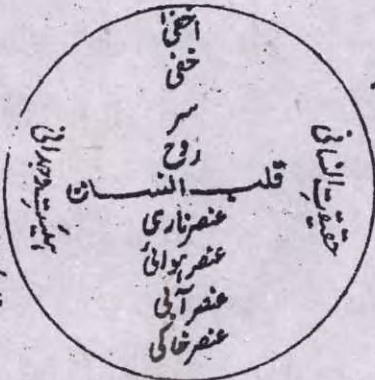 اخفیٰ
خفی
سر
روح
قلب انسان
عنصر ناری
عنصر ہوائی
عنصر آبی
عنصر خاکی
حقیقت انسانی
ہیئت وحدانی